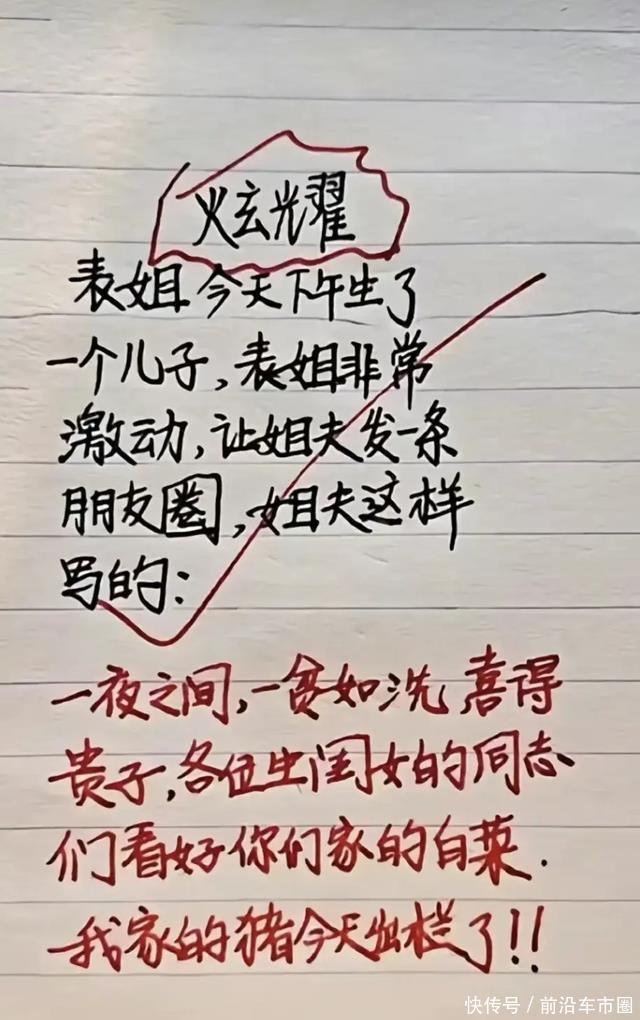 炫耀
表姐今天下午生了
一个儿子,表姐非常
激动,让姐夫发一条
朋友圈,姐夫这样
写的:
一夜之间,一贫如洗,喜得
贵子,各位生闺女的同志
们看好你们家的白菜.
我家的猪今天出栏了!!
快传号/前沿车市圈